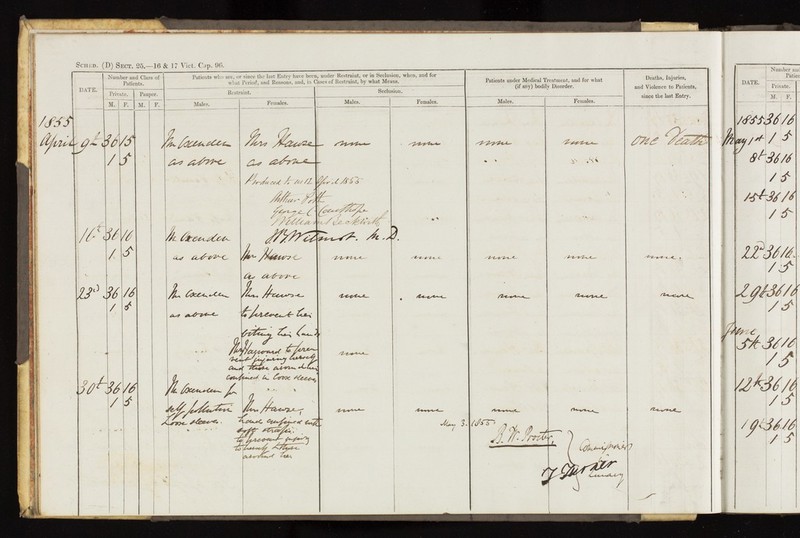 SCHED. (D) SECT. 25.—16 & 17 Vict. Cap. 96.
DATE.
Number and Class of Patients.
Private. Pauper.
M. F. M. F.
Patients who are, or since the last Entry have been, under Restraint, or in Seclusion, when, and for
what Period, and Reasons, and, in Cases of Restraint, by what Means.
Restraint. Seclusion.
Males. Females. Males. Females.
Patients under Medical Treatment, and for what
(if any) bodily Disorder.
Males. Females.
Deaths, Injuries,
and Violence to Patients,
since the last Entry.
1855
April 9th 36 15 Mr Oxenden Mrs Hawse none none none none One Death
1 5 as above as above
Produced to us 12 April 1855
Arthur Pott
George C Courthope
William
W Wilmot. M.D.
16th 36 16 Mr Oxenden
1 5 as above Mrs Hawse none none none none none.
as above
23rd 36 16 Mr Oxenden Mrs Hawse none none none none none
1 5 as above to prevent her
biting her hands
to prevent injuring herself none
and those around her
confined in loose sleeves
30th 36 16 Mr Oxenden for
1 5 self pollution Mrs Hawse, none none none none none
Loose sleeves. hand confined with
soft straps.
to prevent injury
to herself & those
around her
May 3. 1855
R. W. Procter
Commissioners
Turner
Lunacy
DATE.
Number and
Private.
M. F.
1855 36 16
May 1st 1 5
8th 36 16
1 5
15th 36 16
1 5
22nd 36 16
1 5
29th 36 16
1 5
June
5th 36 16
1 5
12th 36 16
1 5
19th 36 16
1 5